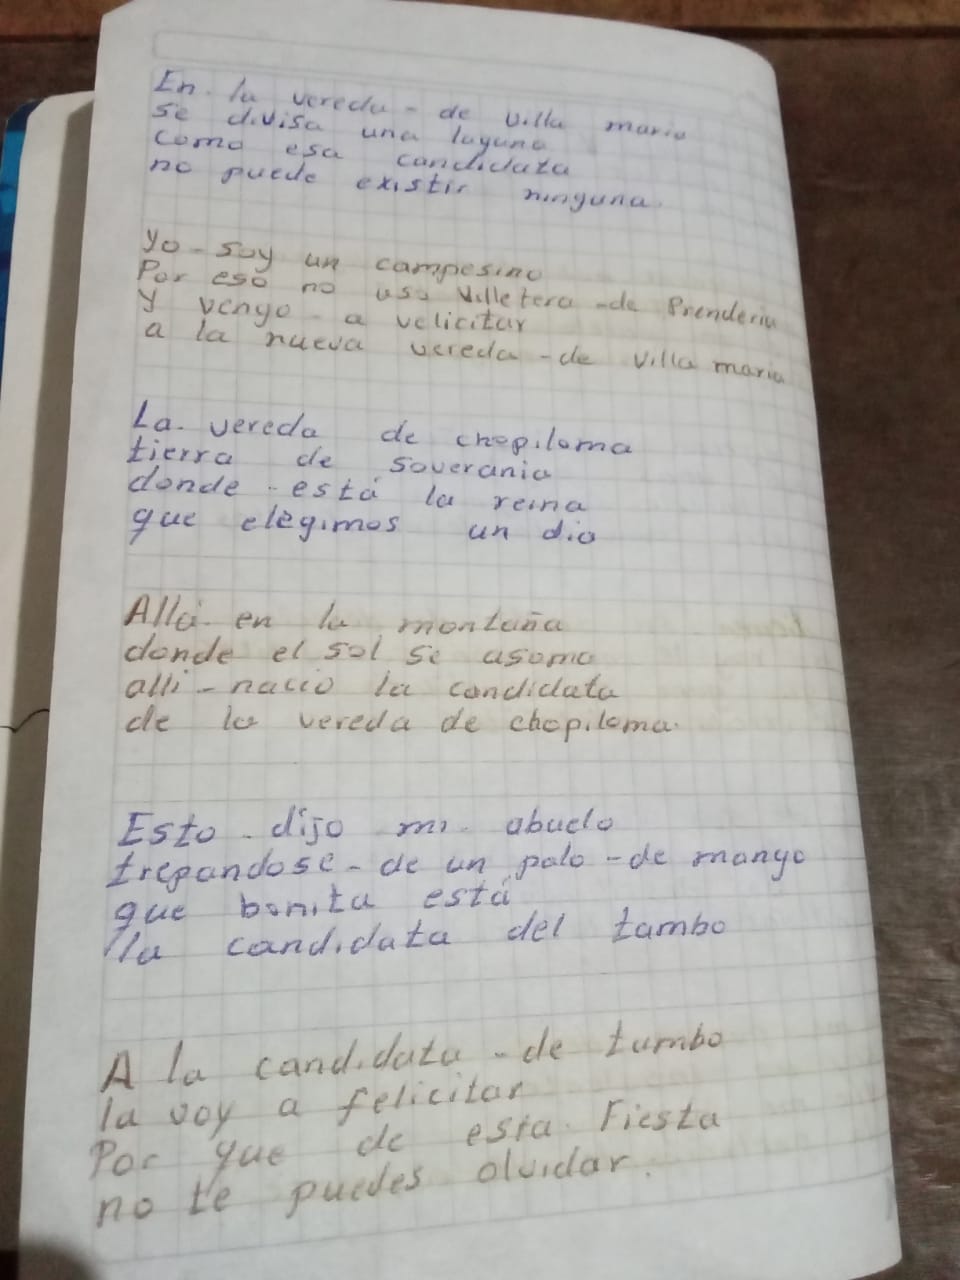 En la vereda - de villa maria
se divisa una laguna
como esa candidata
no puede existir ninguna.
Yo - soy un campesino
Por eso no uso villetera - de Prenderia
y vengo - a velicitar
a la nueva vereda - de villa maria
La. vereda de chopiloma
tierra de soverania
donde - está la reina
que elegimos un dia
Allá en la montaña
donde el sol se asoma
alli - nacio la candidata
de la vereda de chopiloma.
Esto - dijo mi abuelo
trepandose - de un palo - de mango
que bonita está
la candidata del tambo
A la candidata - de tambo
la voy a felicitar
Por que de esta Fiesta
no te puedes olvidar.